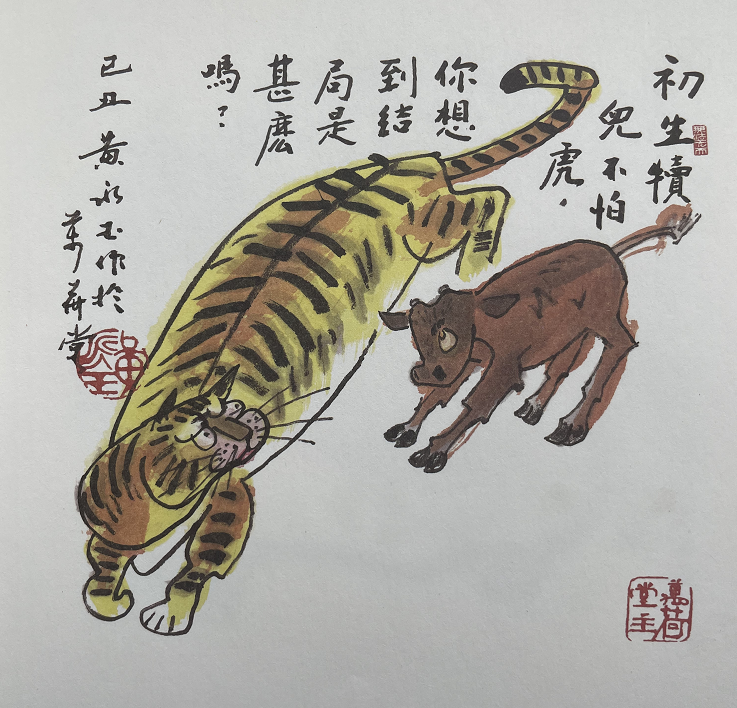 初生犢
兒不怕
虎，
你想
到結
局是
甚麼
嗎？
己丑 黃永玉作於
萬荷堂
黃永玉
萬荷堂主